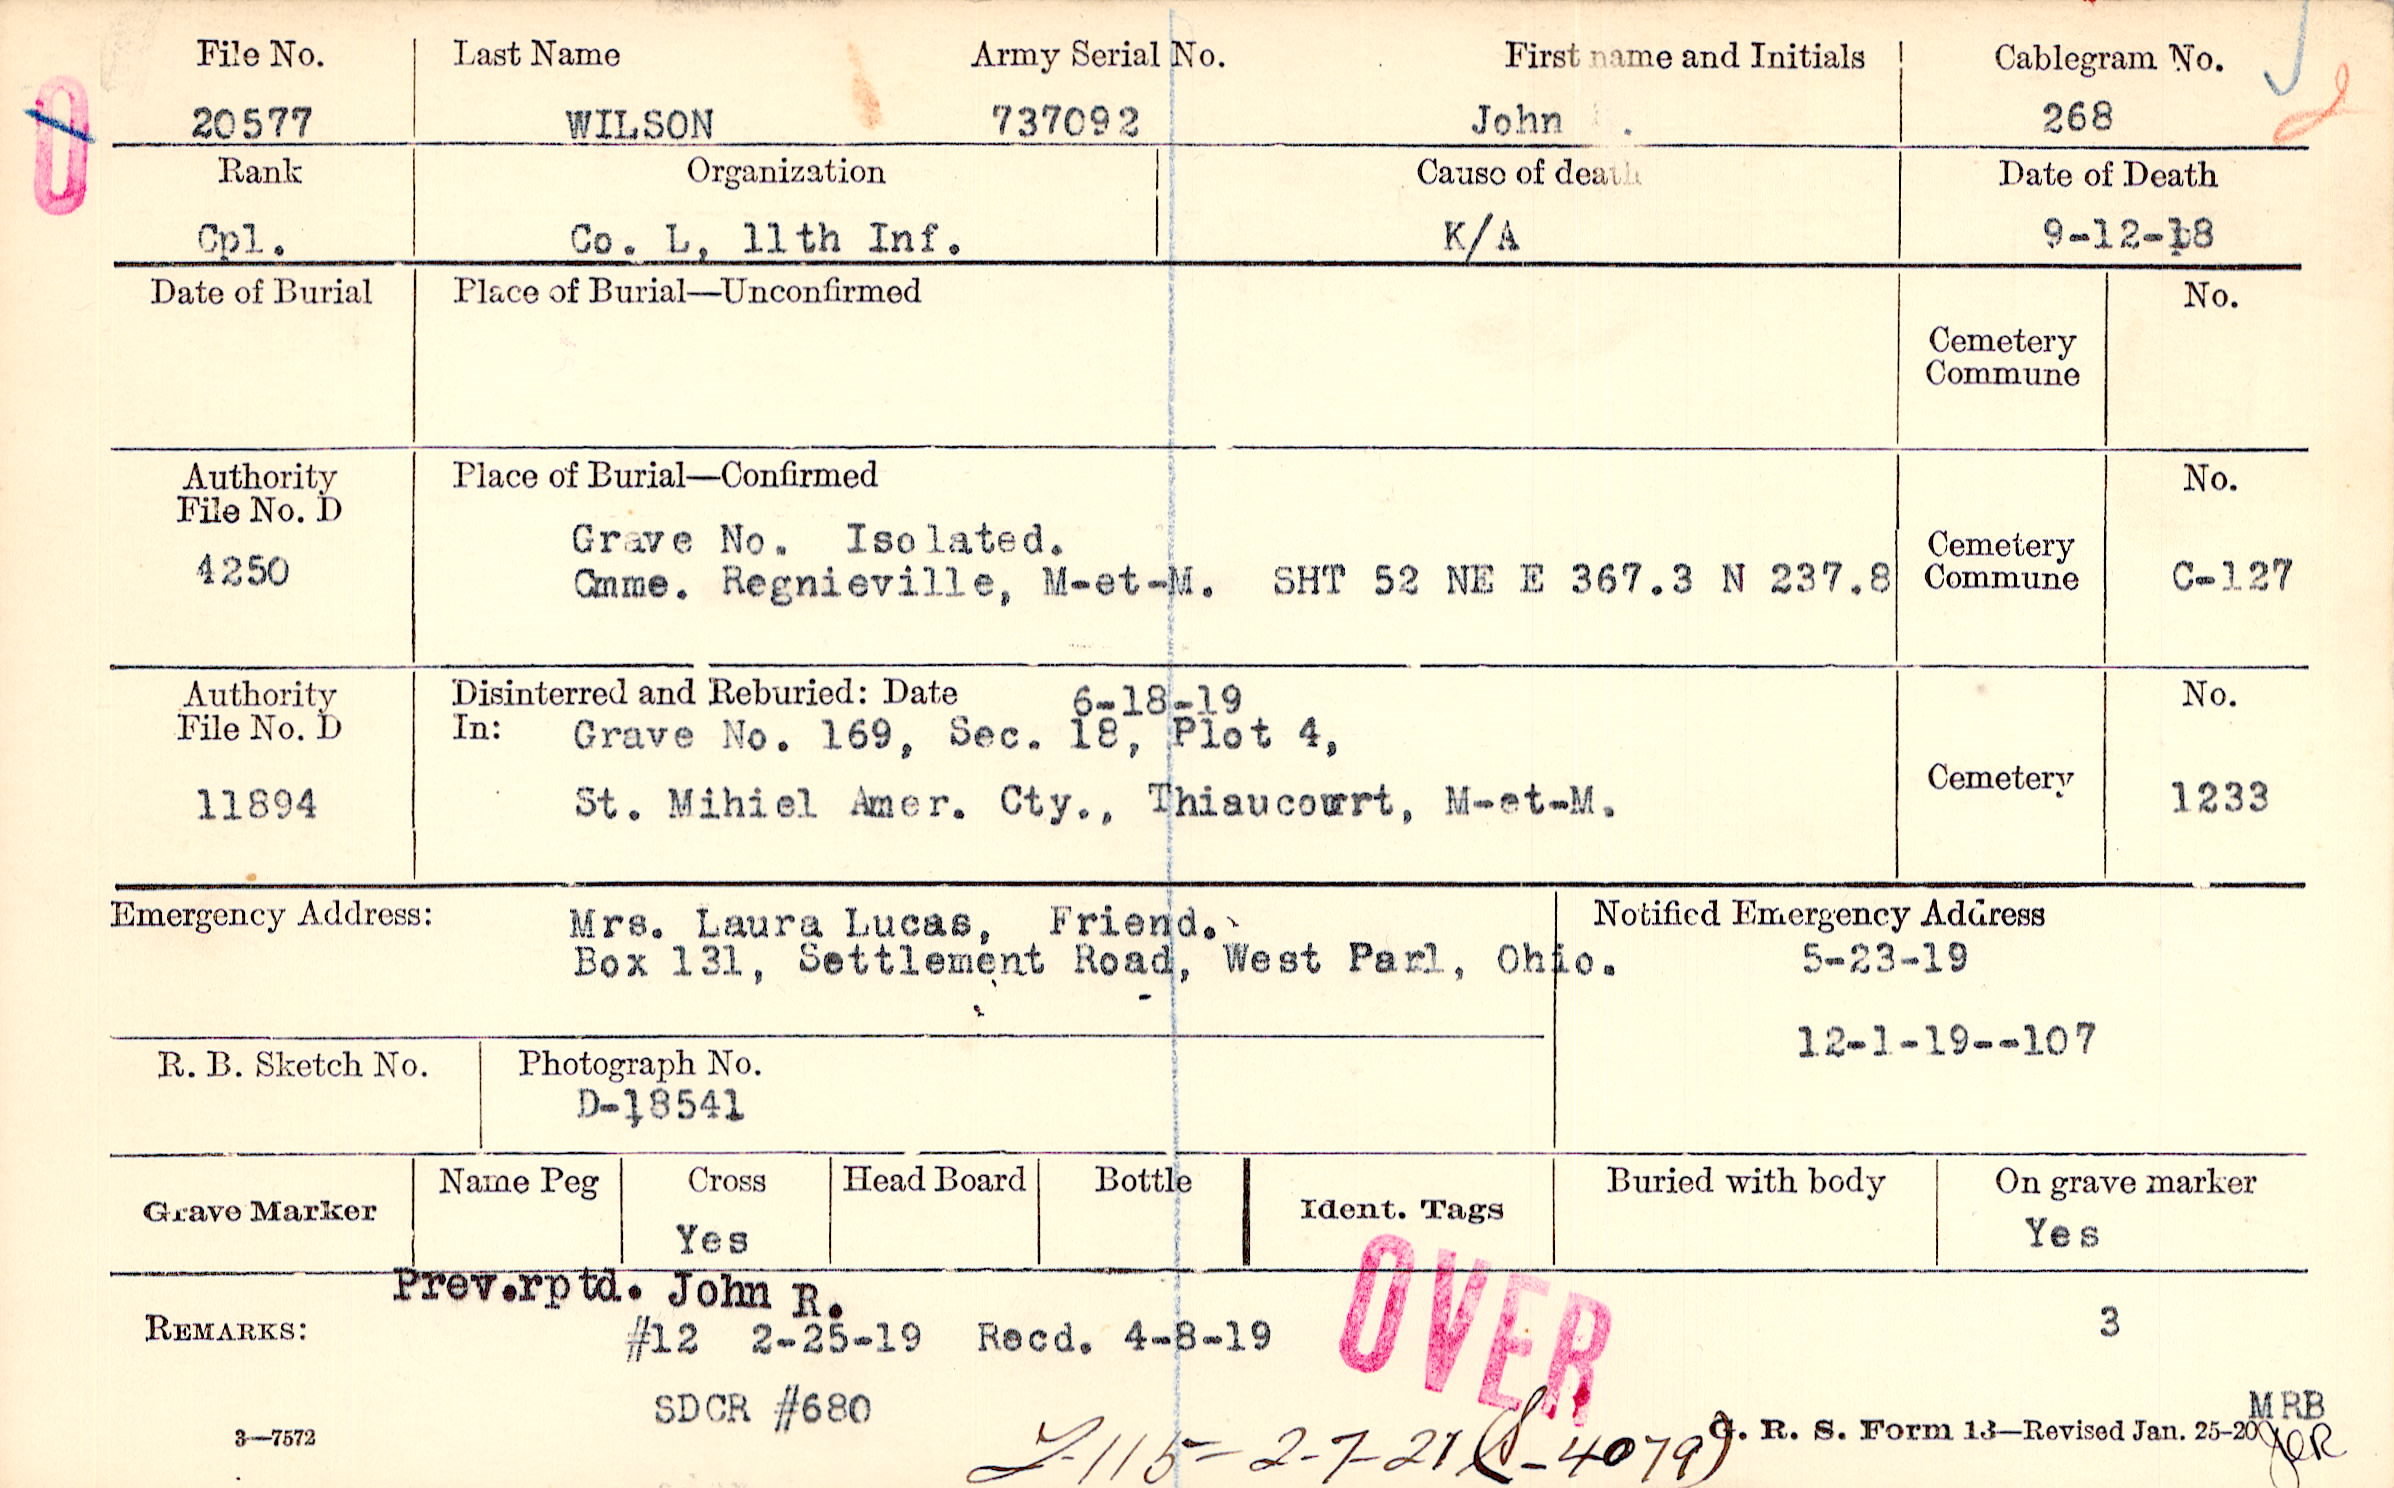 File No. Last Name Army Serial No. First name and Initials Cablegram No.
20577 WILSON 737092 John . 268
Rank Organization Cause of death Date of Death
Cpl. Co. L, 11th Inf. K/A 9-12-18
Date of Burial Place of Burial—Unconfirmed No.
Cemetery
Commune
Authority Place of Burial—Confirmed No.
File No. D
Grave No. Isolated. Cemetery
4250 Cmme. Regnieville, M-et-M. SHT 52 NE E 367.3 N 237.8 Commune C-127
Authority Disinterred and Reburied: Date 6-18-19 No.
File No. D In: Grave No. 169, Sec. 18, Plot 4,
Cemetery
11894 St. Mihiel Amer. Cty., Thiaucourt, M-et-M. 1233
Emergency Address: Mrs. Laura Lucas, Friend. Notified Emergency Address
Box 131, Settlement Road, West Parl, Ohio. 5-23-19
12-1-19--107
R. B. Sketch No. Photograph No.
D-18541
Grave Marker Name Peg Cross Head Board Bottle Ident. Tags Buried with body On grave marker
Yes Yes
Prev.rptd. John R.
REMARKS: #12 2-25-19 Recd. 4-8-19 OVER 3
SDCR #680
MRB
3—7572 G. R. S. Form 13—Revised Jan. 25-20
-115-2-7-21 (S-4079)